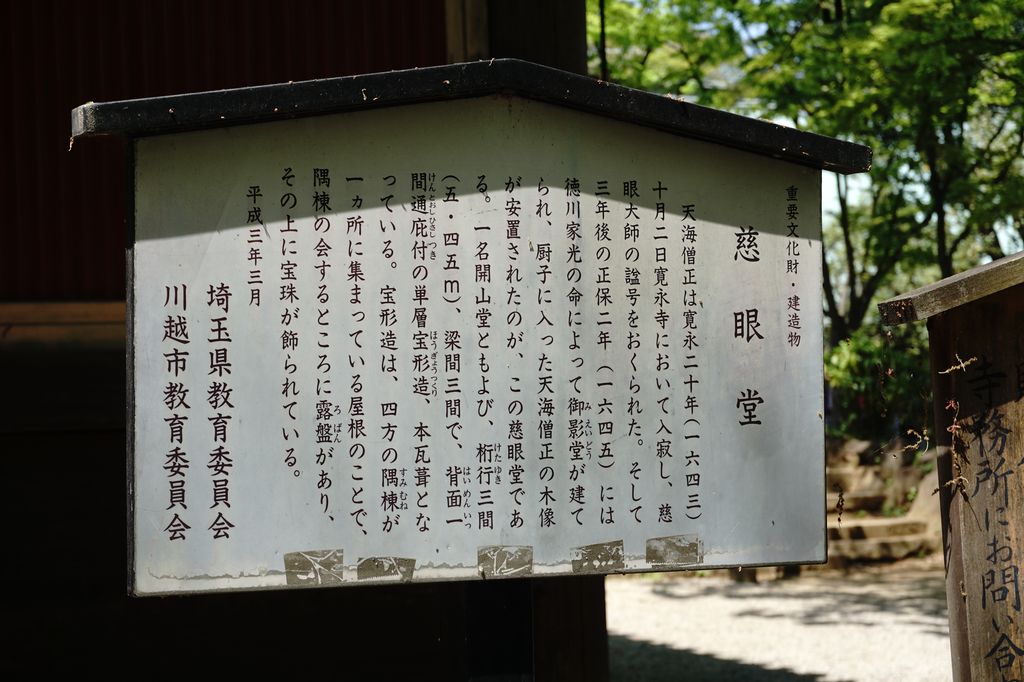 重要文化財・建造物
慈眼堂
天海僧正は寛永二十年(一六四三)
十月二日寛永寺において入寂し、慈
眼大師の諡号をおくられた。そして
三年後の正保二年(一六四五)には
徳川家光の命によって御影堂が建て
られ、厨子に入った天海僧正の木像
が安置されたのが、この慈眼堂であ
る。一名開山堂ともよび、桁行三間
(五・四五m)、梁間三間で、背面一
間通庇付の単層宝形造、本瓦葺とな
っている。宝形造は、四方の隅棟が
一ヵ所に集まっている屋根のことで、
隅棟の会するところに露盤があり、
その上に宝珠が飾られている。
平成三年三月
埼玉県教育委員会
川越市教育委員会
寺務所にお問い合